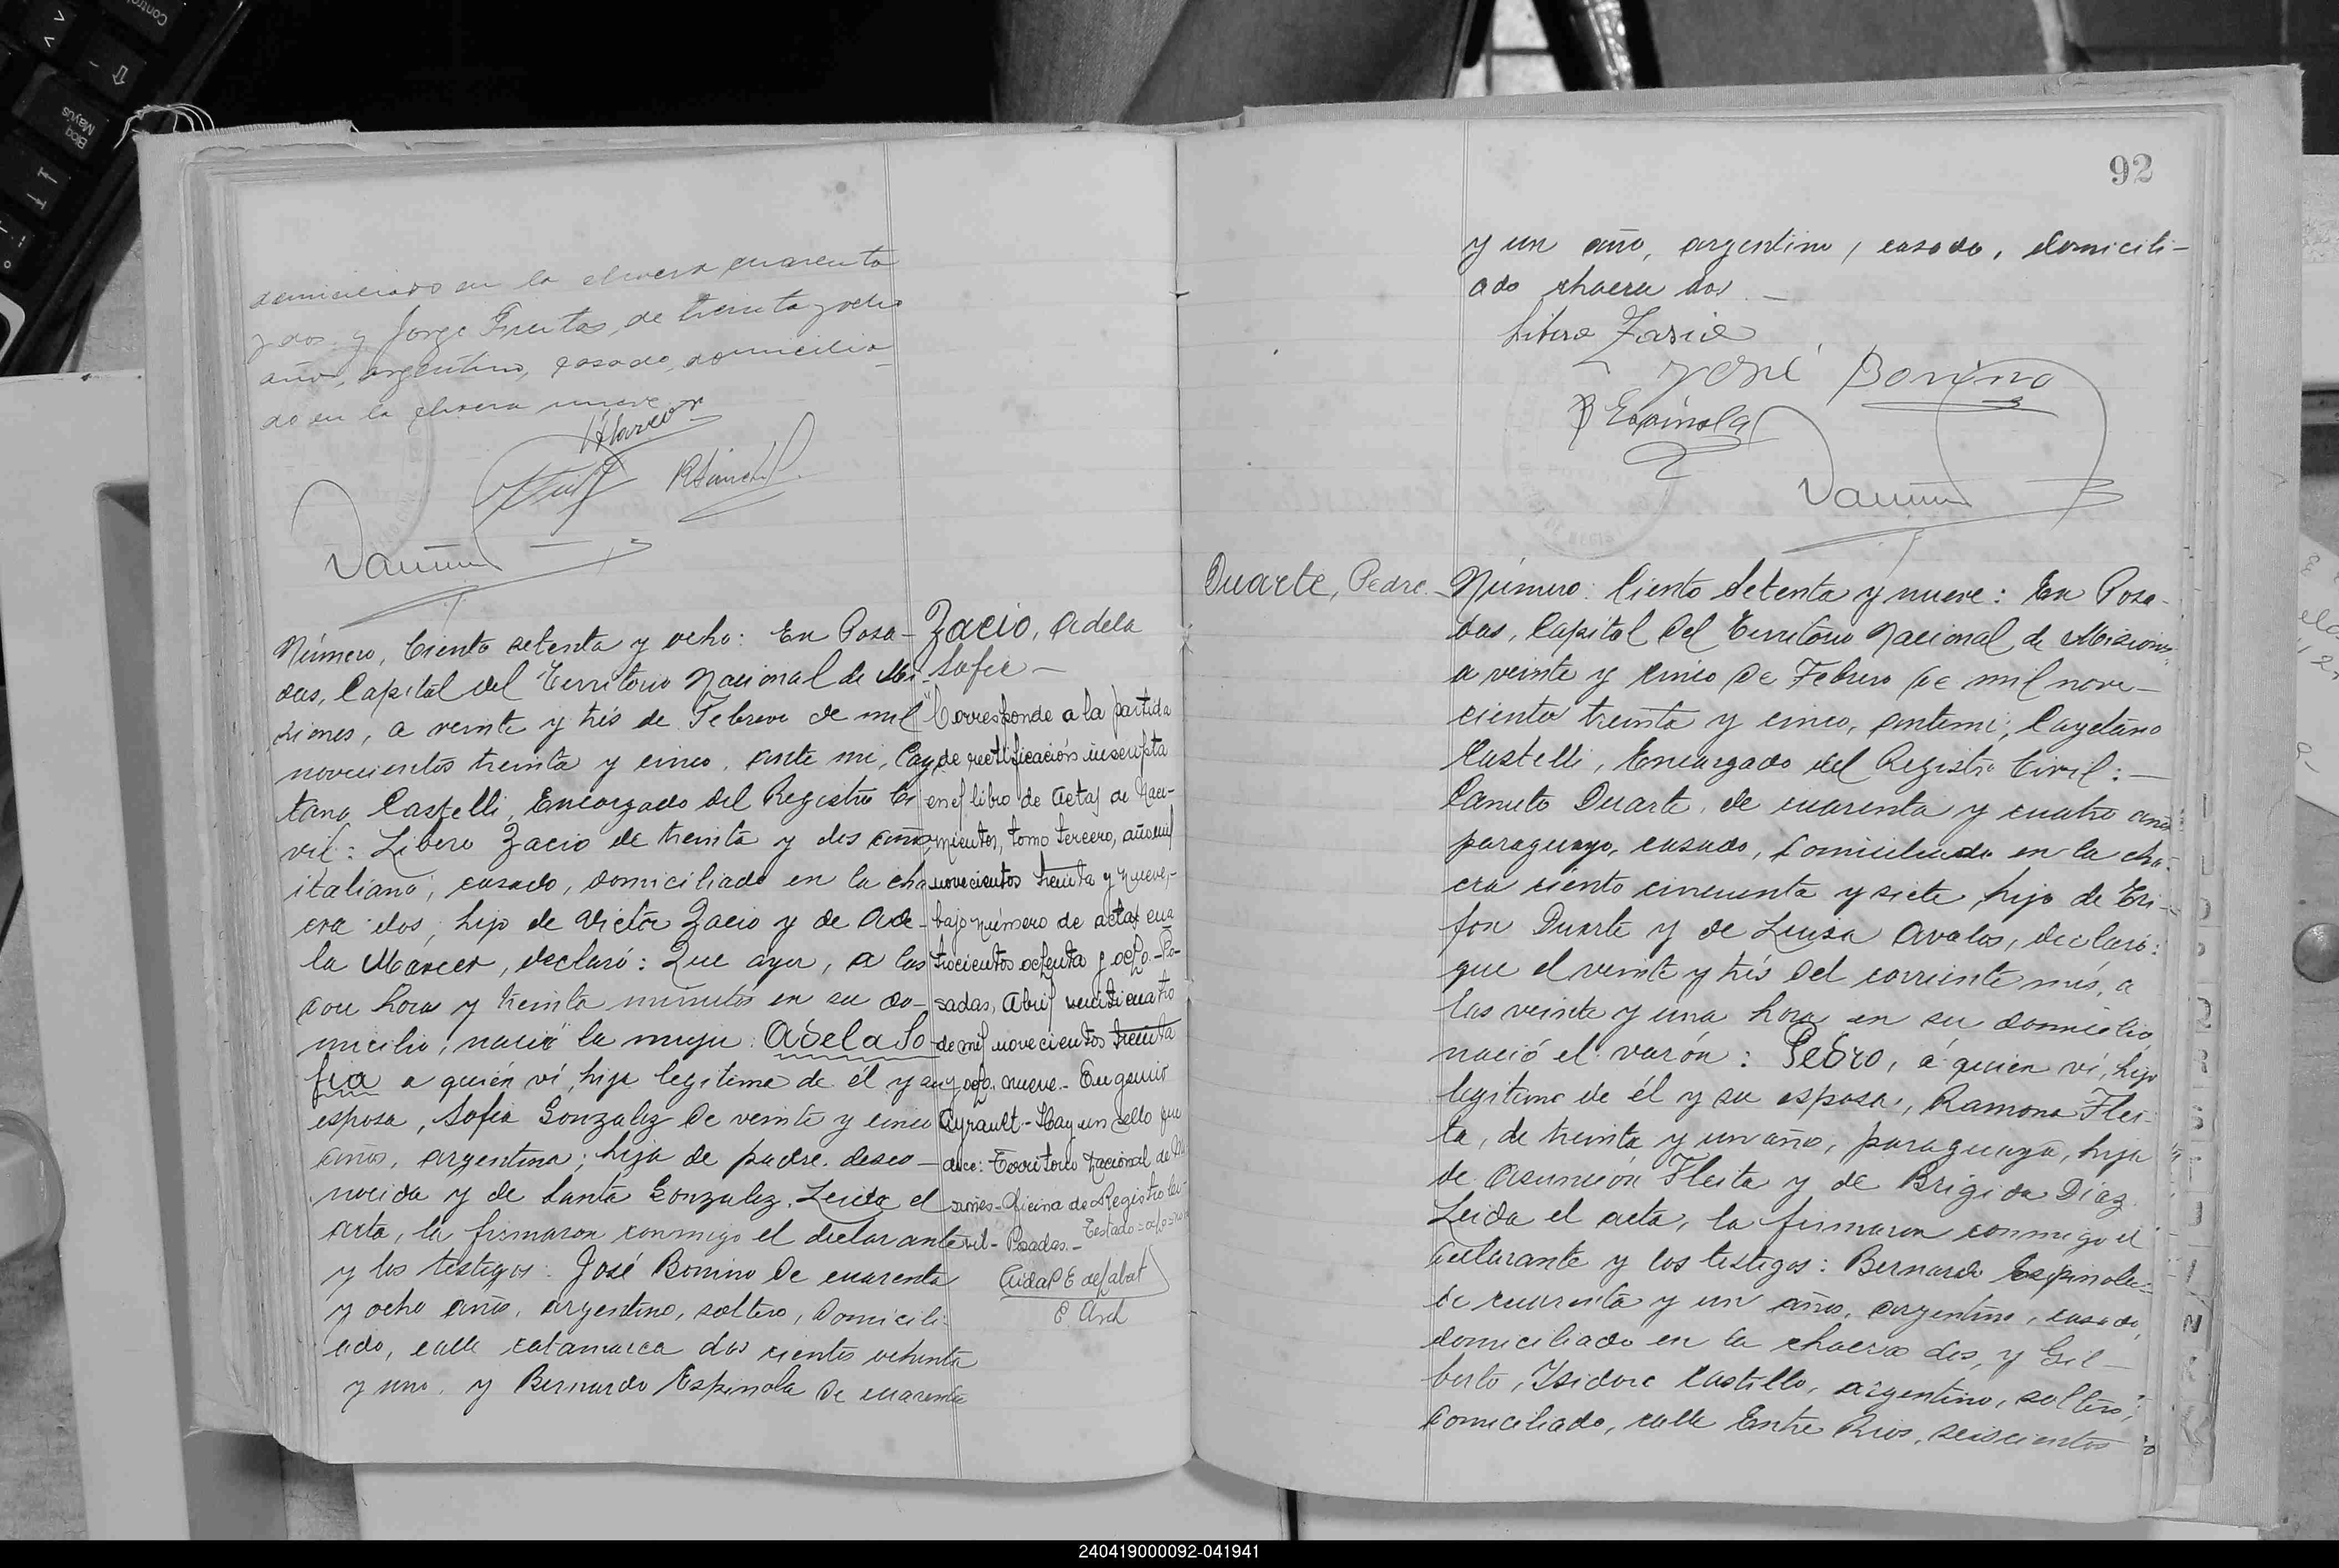 domiciliado en la chacra cuarenta
y dos y Jorge Freitas, de treinta y ocho
años, argentino, casado, domicilia-
do en la chacra nueve
Número, Ciento setenta y ocho: En Posa-
das, Capital del Territorio Nacional de Mi-
siones, a veinte y trés de Febrero de mil
novecientos treinta y cinco, ante mi, Caye
tano Castelli, Encargado del Registro Ci
vil: Libero Zacio de treinta y dos años
italiano, casado, domiciliado en la cha
cra dos, hijo de Victor Zacio y de Ade-
la Marcer, declaró: Que ayer, a las
doce horas y treinta minutos en su do-
micilio, nació la mujer: Adela So-
fia a quién ví, hija legitima de él y su
esposa, Sofia Gonzalez de veinte y cinco
años, argentina; hija de padre desco-
nocido y de Santa Gonzalez. Leida el
acta, la firmaron conmigo el declarante
y los testigos: José Bonino de cuarenta
y ocho años, argentino, soltero, domicili-
ado, calle catamarca dos cientos ochenta
y uno, y Bernardo Espinola de cuarenta
Zacio, Adela
Sofia -
"Corresponde a la partida
de rectificación inscripta
en el libro de Actas de Naci-
mientos, tomo tercero, año mil
novecientos treinta y nueve,-
bajo número de actas cua
trocientos ochenta y ocho.-Po-
sadas, Abril veinticuatro
de mil novecientos treinta
y ocho. nueve.- Eugenio
Ayrault.- Hay un sello que
dice: Territorio Nacional de Mi
siones-Oficina de Registro Ci-
vil- Posadas.-
92
y un año, argentino, casado, domicili-
ado chacra dos. -
Libero Zacio
José Bonino
B Espinola
Duarte, Pedro.
Número: Ciento setenta y nueve: En Posa-
das, Capital del Territorio Nacional de Misiones,
a veinte y cinco de Febrero de mil nove-
cientos treinta y cinco, antemi; Cayetano
Castelli, Encargado del Registro Civil: -
Canuto Duarte, de cuarenta y cuatro años
paraguayo, casado, domiciliado en la cha-
cra ciento cincuenta y siete, hijo de Tri-
fon Duarte y de Luisa Avalos, declaró:
que el veinte y trés del corriente més, a
las veinte y una hora en su domicilio
nació el varón: Pedro, á quien ví, hijo
legitimo de él y su esposa, Ramona Flei-
ta, de treinta y un año, paraguaya, hija
de Asunción Fleita y de Brigida Díaz.
Leida el acta, la firmaron conmigo el
declarante y los testigos: Bernardo Espinola
de cuarenta y un años, argentino, casado,
domiciliado en la chacra dos, y Gil-
berto, Isidoro Castillo, argentino, soltero,
domiciliado, calle Entre Rios, seiscientos
240419000092-041941